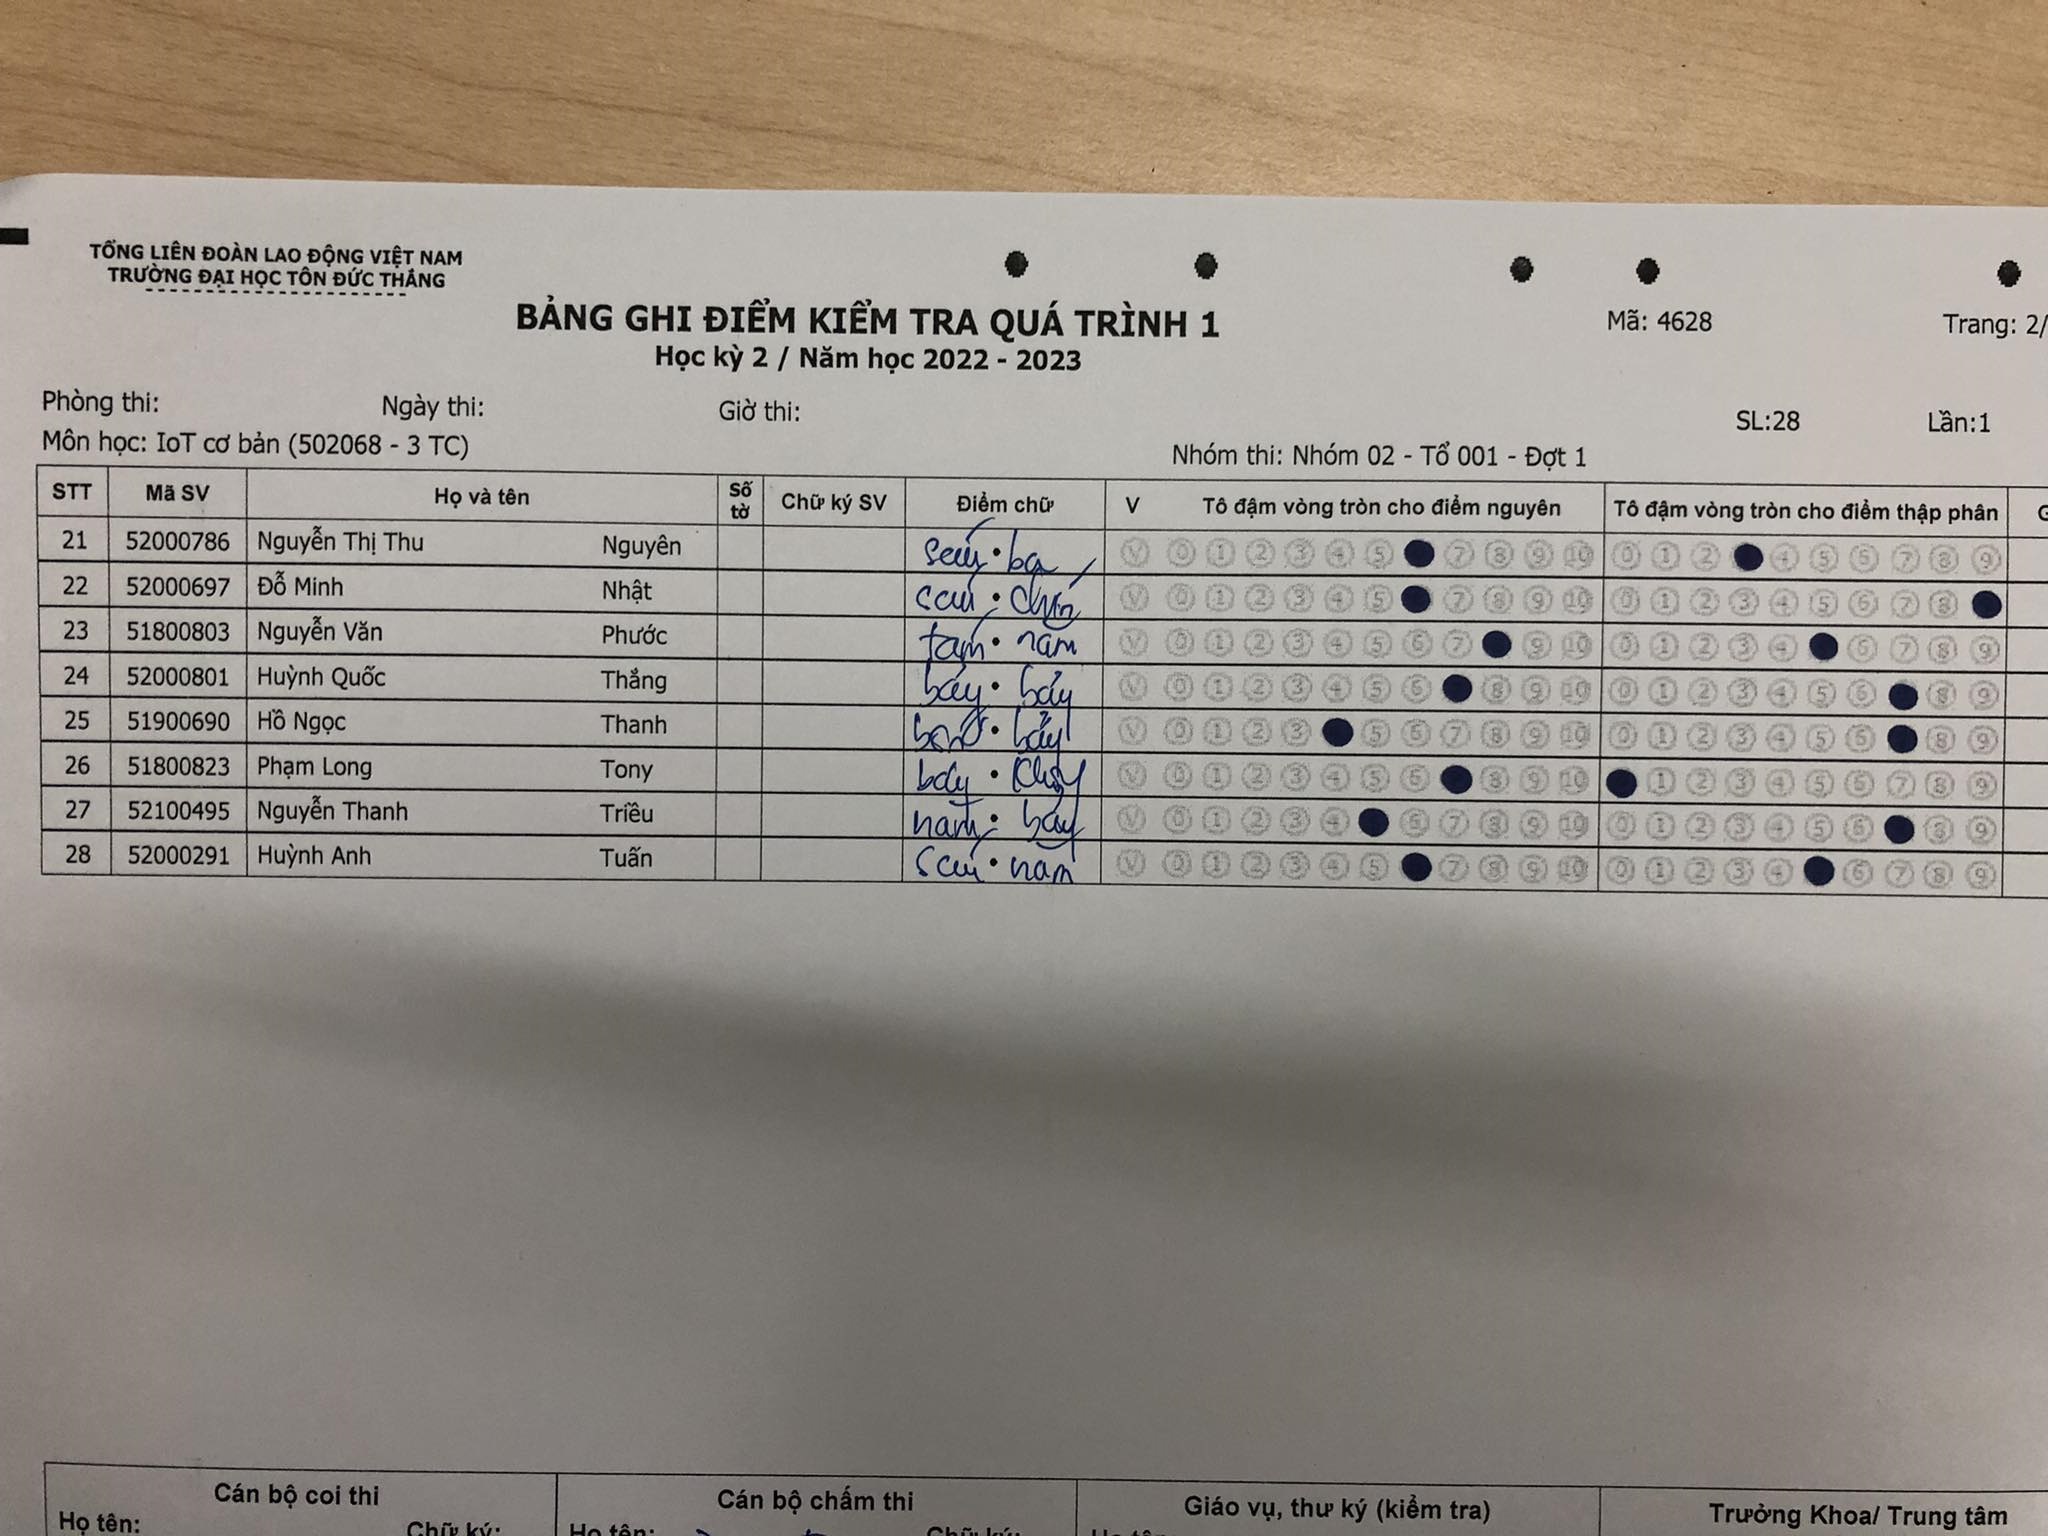 TỔNG LIÊN ĐOÀN LAO ĐỘNG VIỆT NAM
TRƯỜNG ĐẠI HỌC TÔN ĐỨC THẮNG
BẢNG GHI ĐIỂM KIỂM TRA QUÁ TRÌNH 1
Mã: 4628 Trang: 2/
Học kỳ 2 / Năm học 2022 - 2023
Phòng thi: Ngày thi: Giờ thi: SL:28 Lần:1
Môn học: IoT cơ bản (502068 - 3 TC) Nhóm thi: Nhóm 02 - Tổ 001 - Đợt 1
STT Mã SV Họ và tên Số tờ Chữ ký SV Điểm chữ V Tô đậm vòng tròn cho điểm nguyên Tô đậm vòng tròn cho điểm thập phân G
21 52000786 Nguyễn Thị Thu Nguyên sáu . ba V 0 1 2 3 4 5 7 8 9 10 0 1 2 4 5 6 7 8 9
22 52000697 Đỗ Minh Nhật sáu . chín V 0 1 2 3 4 5 7 8 9 10 0 1 2 3 4 5 6 7 8
23 51800803 Nguyễn Văn Phước tám . năm V 0 1 2 3 4 5 6 7 9 10 0 1 2 3 4 6 7 8 9
24 52000801 Huỳnh Quốc Thắng bảy . bảy V 0 1 2 3 4 5 6 8 9 10 0 1 2 3 4 5 6 8 9
25 51900690 Hồ Ngọc Thanh bốn . bảy V 0 1 2 3 5 6 7 8 9 10 0 1 2 3 4 5 6 8 9
26 51800823 Phạm Long Tony bảy . không V 0 1 2 3 4 5 6 8 9 10 1 2 3 4 5 6 7 8 9
27 52100495 Nguyễn Thanh Triều năm . bảy V 0 1 2 3 4 6 7 8 9 10 0 1 2 3 4 5 6 8 9
28 52000291 Huỳnh Anh Tuấn sáu . năm V 0 1 2 3 4 5 7 8 9 10 0 1 2 3 4 6 7 8 9
Cán bộ coi thi Cán bộ chấm thi Giáo vụ, thư ký (kiểm tra) Trưởng Khoa/ Trung tâm
Họ tên: Chữ ký: Họ tên: Chữ ký: Họ tên: